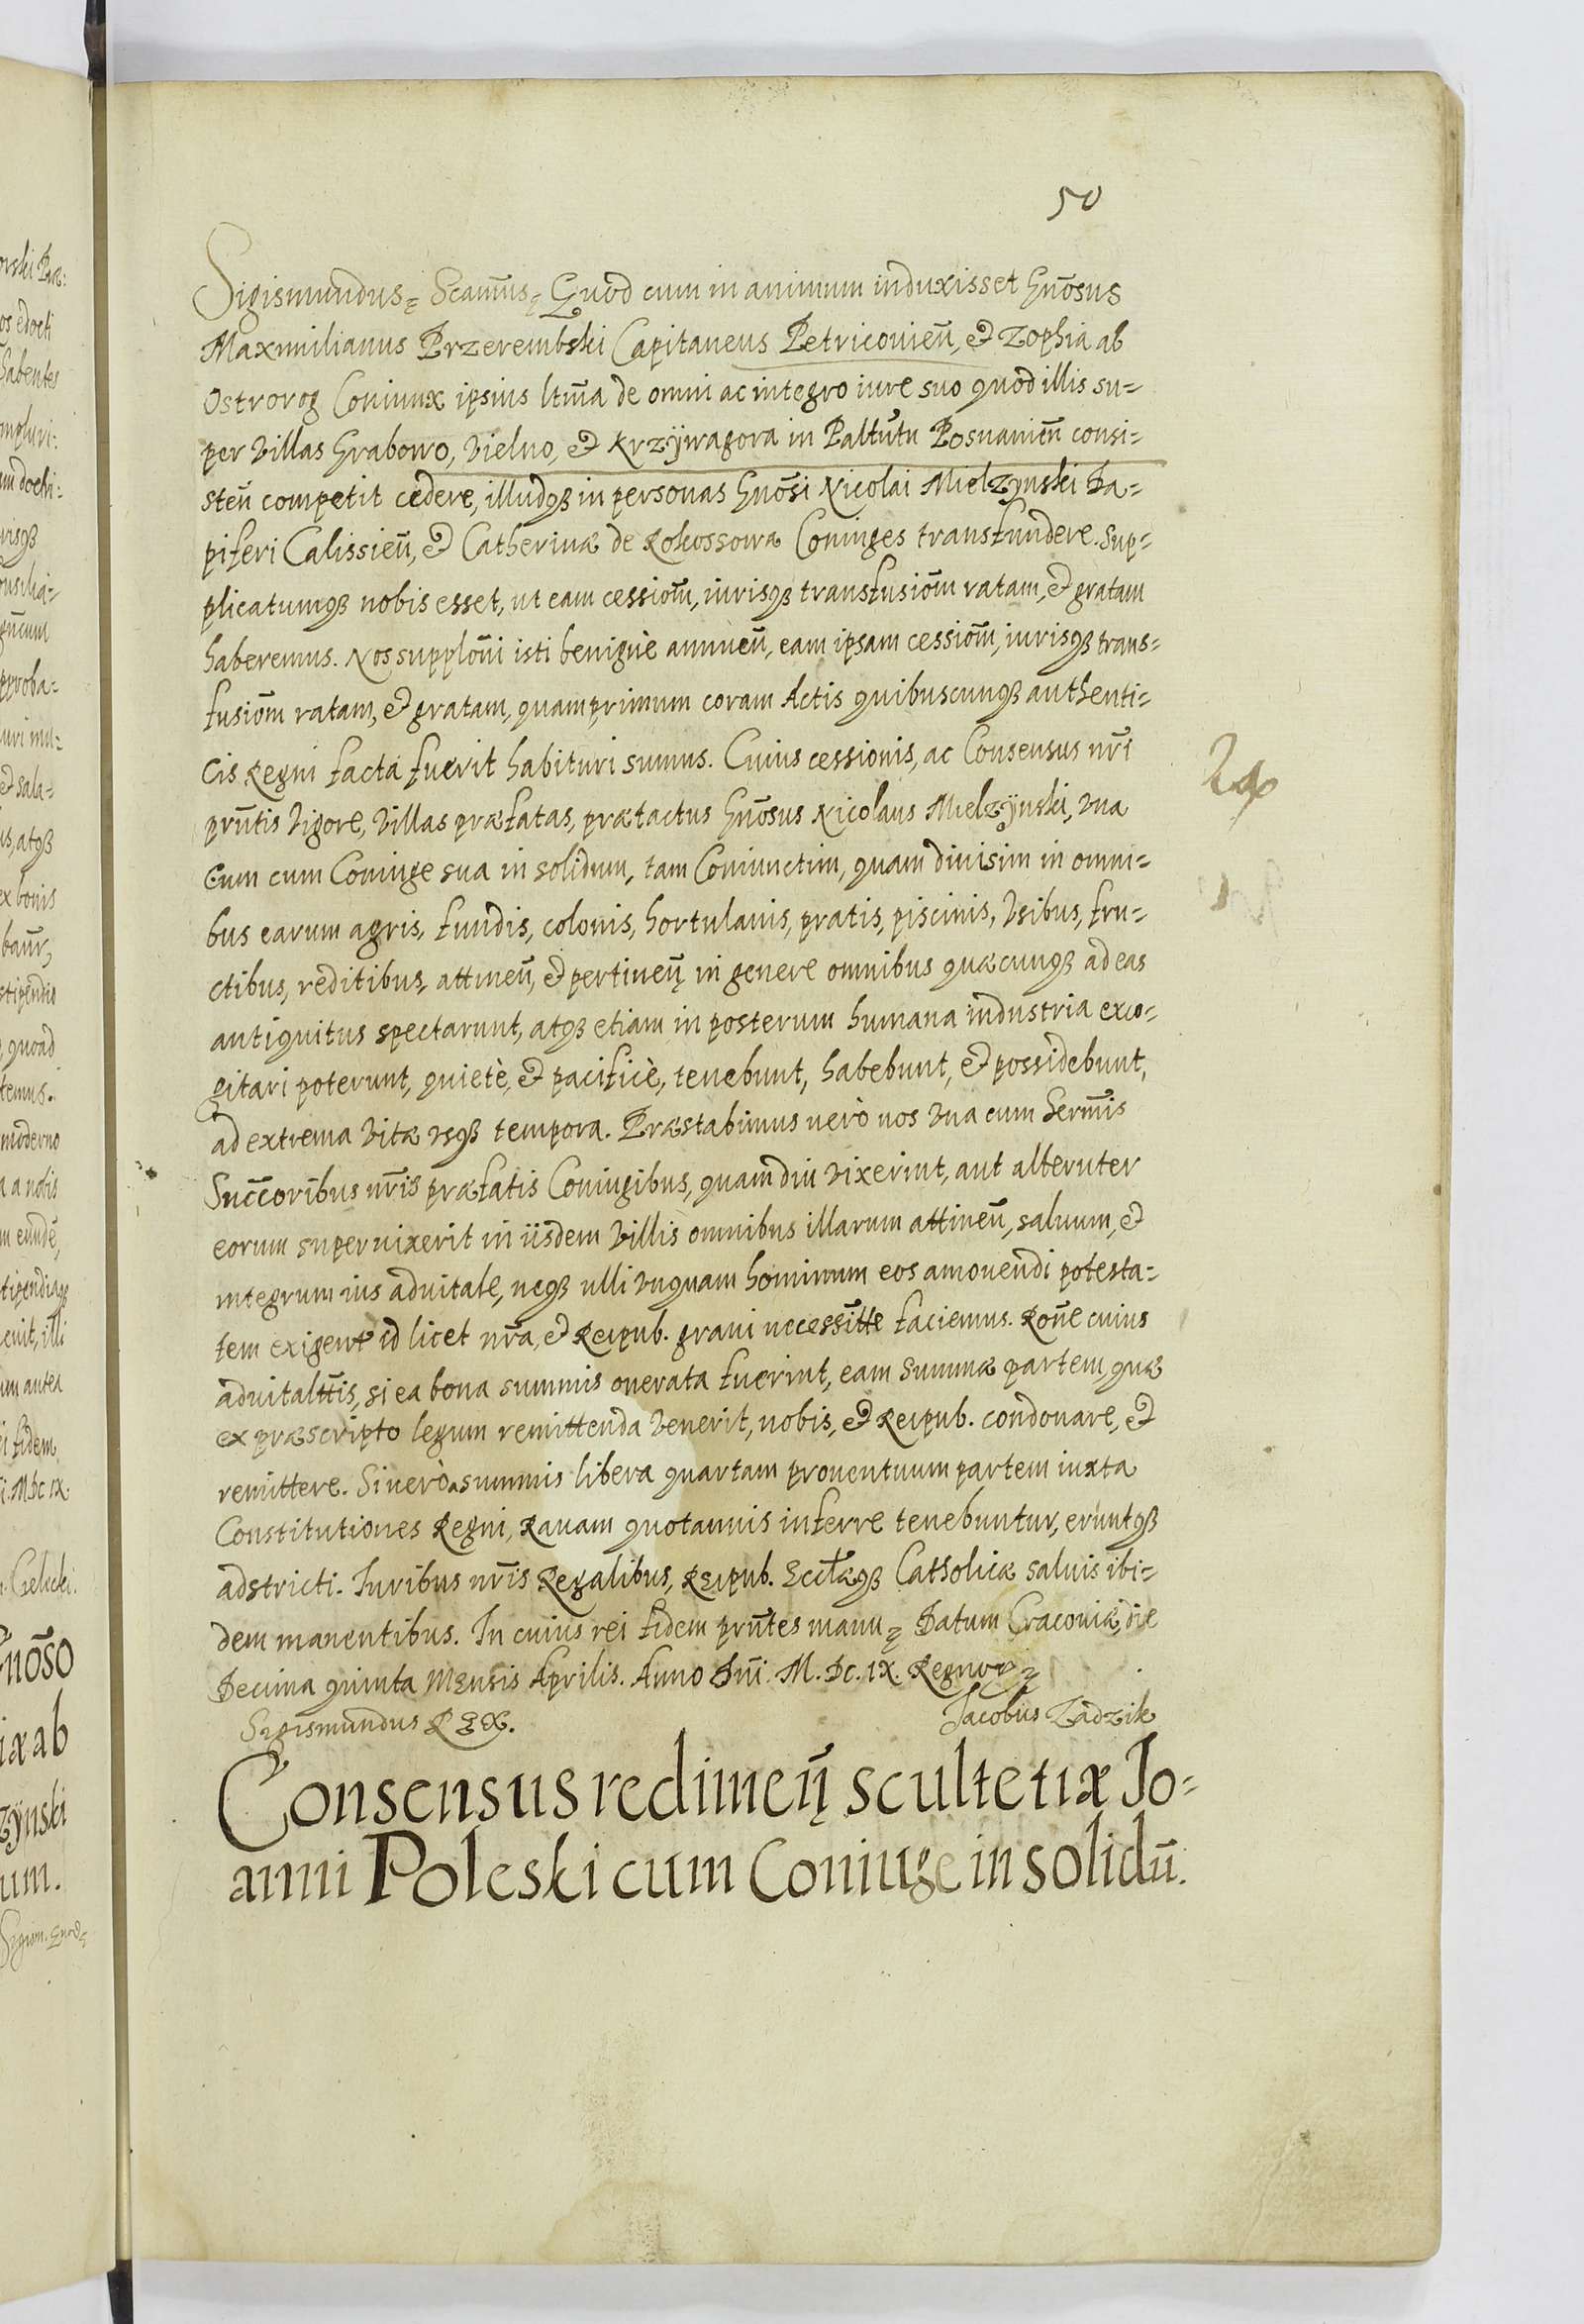 50
Sigismundus ꝫ Scamus̃ ꝫ Quod cum in animum induxisset Gnõsus
Maxmilianus Przerembski Capitaneus Petricovien̄, et Zophia ab
Ostrorog Coniunx ipsius ltm̃a de omni ac integro iure suo quod illis su=
per villas Grabowo, Vielno, et Krzÿwagora in Palttu Posnanien̄ consi=
sten̄ competit cedere, illudqȝ in personas Gnõsi Nicolai Mielzynski Da=
piferi Calissien̄, et Catherinæ de Rokossowa Coniuges transfundere. Sup=
plicatumqȝ nobis esset, ut eam cessiom̃, iurisqȝ transfusiom̃ ratam, et gratam
haberemus. Nos supplõni isti benignè annuen̄, eam ipsam cessiom̃, iurisqȝ trans=
fusiom̃ ratam, et gratam, quamprimum coram Actis quibuscunqȝ authenti=
cis Regni facta fuerit habituri sumus. Cuius cessionis, ac Consensus nr̃i
prn̄tis vigore, villas præfatas, prætactus Gnõsus Nicolaus Mielzÿnski, vna
cum cum Coniuge sua in solidum, tam Coniunctim, quam diuisim in omni=
bus earum agris, fundis, colonis, hortulanis, pratis, piscinis, Vsibus, fru=
ctibus, reditibus, attinen̄, et pertinen̄ꝫ in genere omnibus quæcunqȝ ad eas
antiquitus spectarunt, atqȝ etiam in posterum humana industria exco=
gitari poterunt, quietè, et pacificè, tenebunt, habebunt, et possidebunt,
ad extrema vitæ vsqȝ tempora. Præstabimus verò nos vna cum Serm̃is
Succ̃oribus nr̃is præfatis Coniugibus, quamdiu vixerint, aut alteruter
eorum superuixerit in iisdem villis omnibus illarum attinen̄, saluum, et
integrum ius aduitale, neqȝ ulli vnquam hominum eos amouendi potesta=
tem exigent id licet nr̃a, et Reipub. graui necessitte faciemus. Rõne cuius
aduitalttis, si ea bona summis onerata fuerint, eam summæ partem, quæ
ex præscripto legum remittenda venerit, nobis, et Reipub. condonare, et
remittere. Si verò a summis libera quartam prouentuum partem iuxta
Constitutiones Regni, Rauam quotannis inferre tenebuntur, eruntqȝ
adstricti. Iuribus nr̃is Regalibus, Reipub. Eccłæqȝ Catholicæ saluis ibi=
dem manentibus. In cuius rei fidem prn̄tes manu ꝫ Datum Cracoviæ, die
Decima quinta Mensis Aprilis. Anno Dn̄i. M. DC. IX. Regnor ꝫ
Sigismundus REX.
Jacobus Zadzik
Consensus redimen̄ꝫ scultetiæ Jo=
anni Poleski cum Coniuge in solidū.